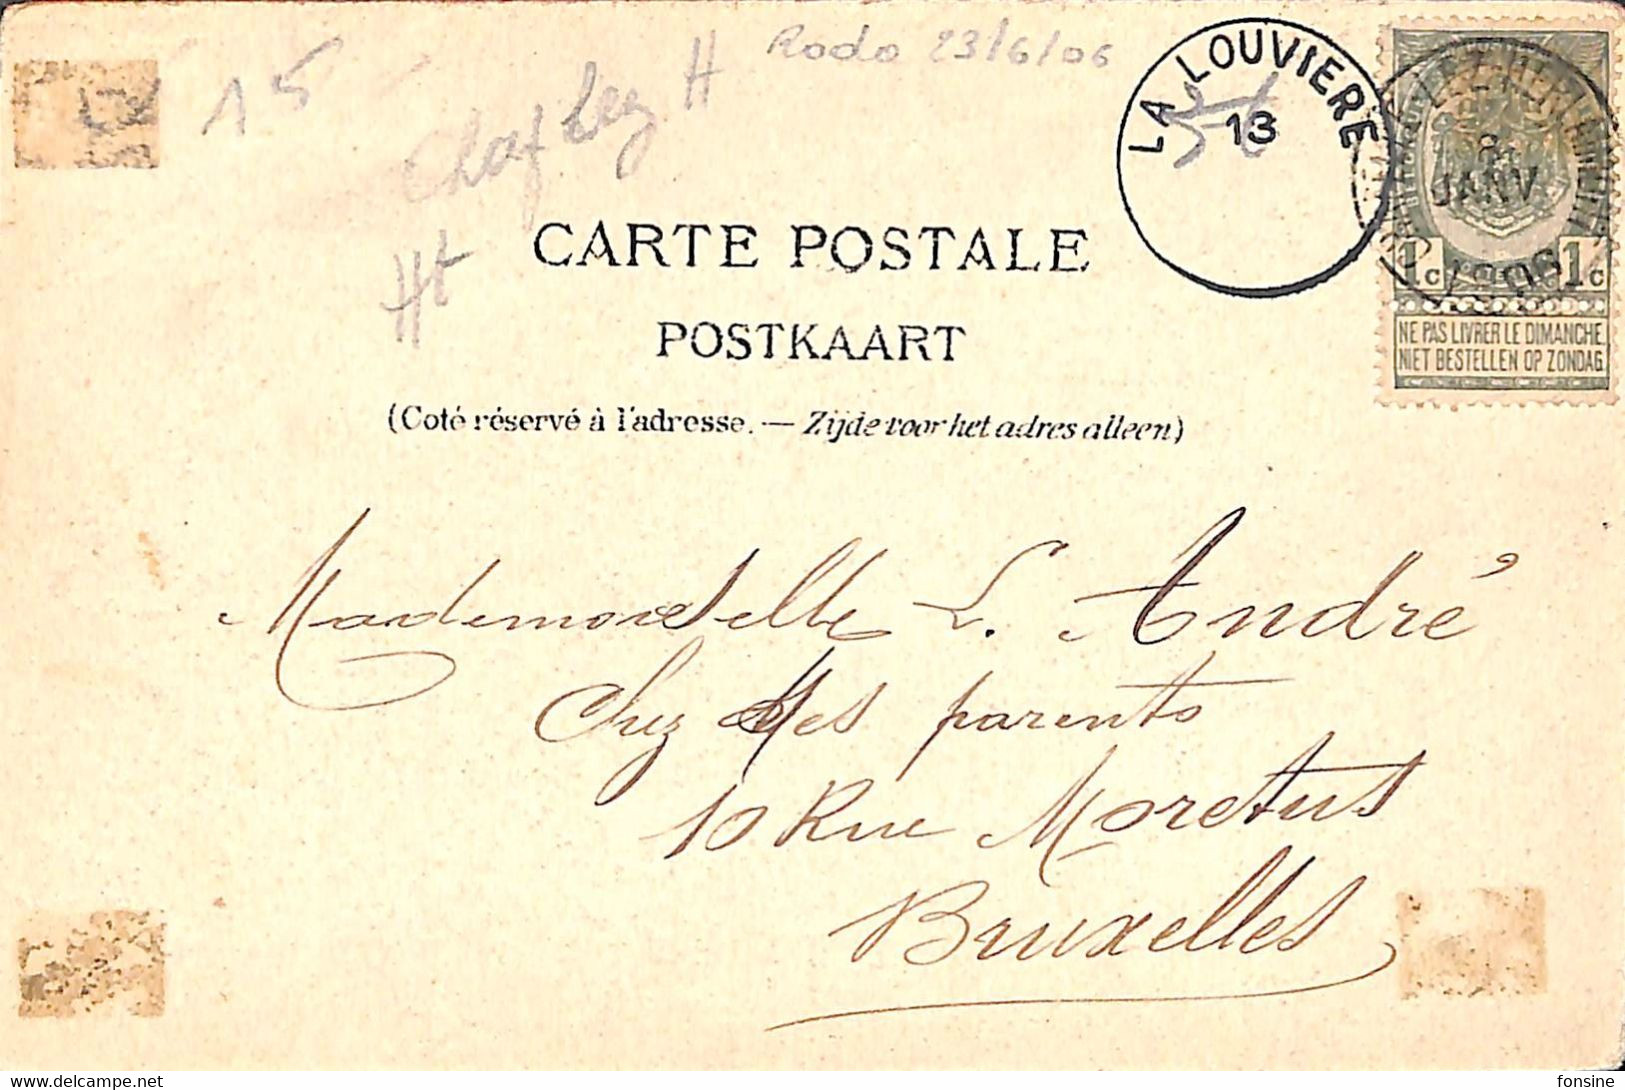 15
Rodo 23/6/06
H
Ht
LA LOUVIERE
13
8
JANV
1906
1c 1c
NE PAS LIVRER LE DIMANCHE.
NIET BESTELLEN OP ZONDAG
CARTE POSTALE
POSTKAART
(Coté réservé à l'adresse. — Zijde voor het adres alleen)
Mademoiselle L. André
Chez ses parents
10 Rue Moretus
Bruxelles
fonsine